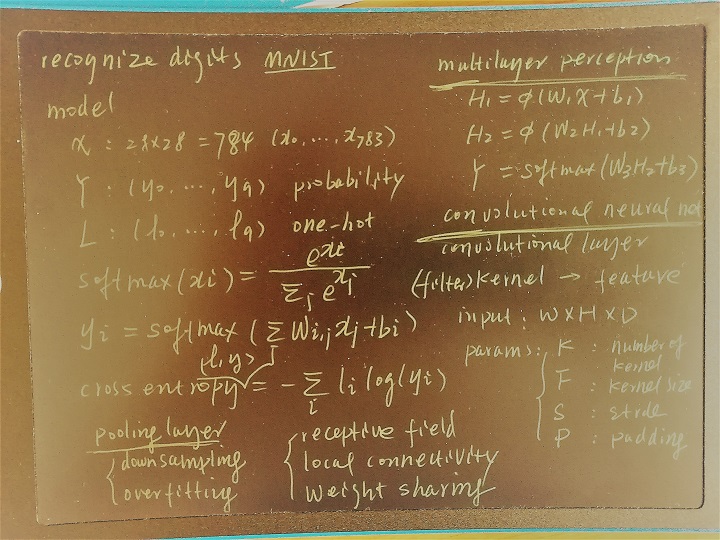 recognize digits MNIST
model
X : 28x28 = 784 (x0, ..., x783)
Y : (y0, ..., y9) probability
L : (l0, ..., l9) one-hot
softmax(xi) = e^xi / Σj e^xj
yi = softmax (Σj Wi,j xj + bi)
(l, y)
cross entropy = - Σi li log(yi)
pooling layer
downsampling
overfitting
receptive field
local connectivity
weight sharing
multilayer perception
H1 = φ(W1X+b1)
H2 = φ(W2H1+b2)
Y = softmax(W3H2+b3)
convolutional neural net
convolutional layer
(filter) kernel → feature
input : W x H x D
params : K : number of
kernel
F : kernel size
S : stride
P : padding